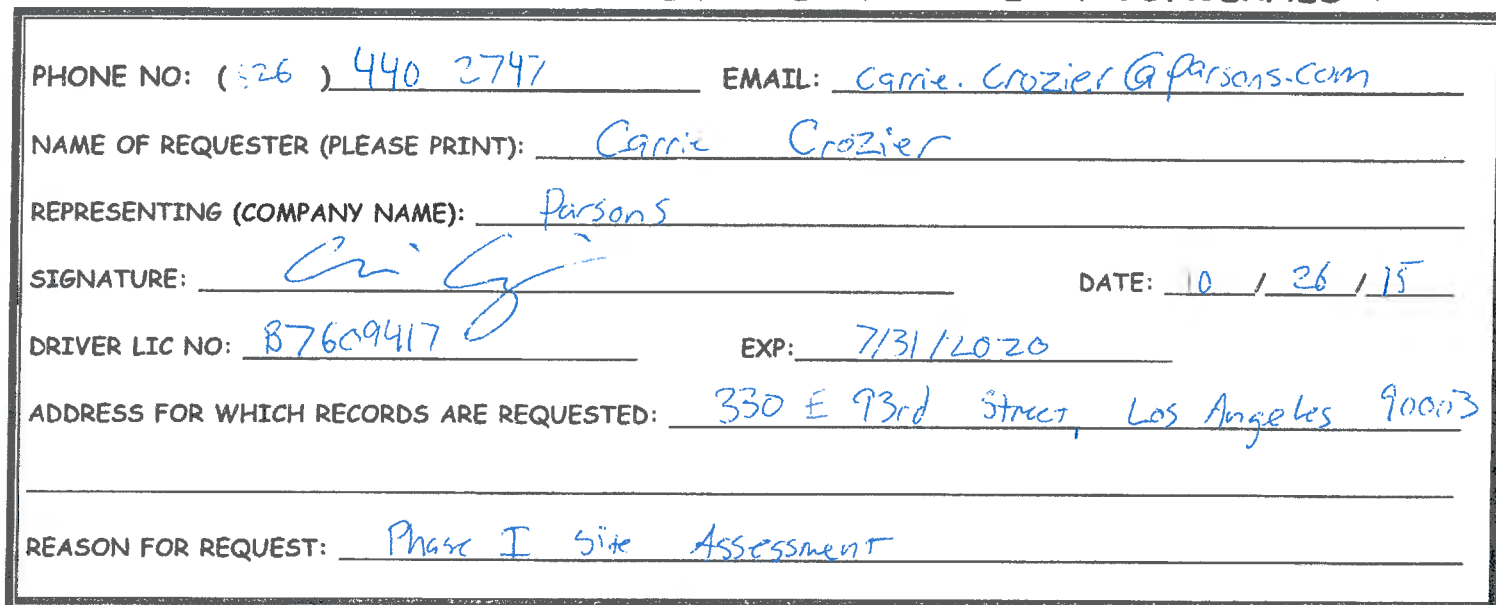 PHONE NO: ( 626 ) 440 2747 EMAIL: Carrie.Crozier@parsons.com
NAME OF REQUESTER (PLEASE PRINT): Carrie Crozier
REPRESENTING (COMPANY NAME): Parsons
SIGNATURE: DATE: 10 / 26 / 15
DRIVER LIC NO: B7609417 EXP: 7/31/2020
ADDRESS FOR WHICH RECORDS ARE REQUESTED: 330 E 93rd Street, Los Angeles 90003
REASON FOR REQUEST: Phase I Site Assessment